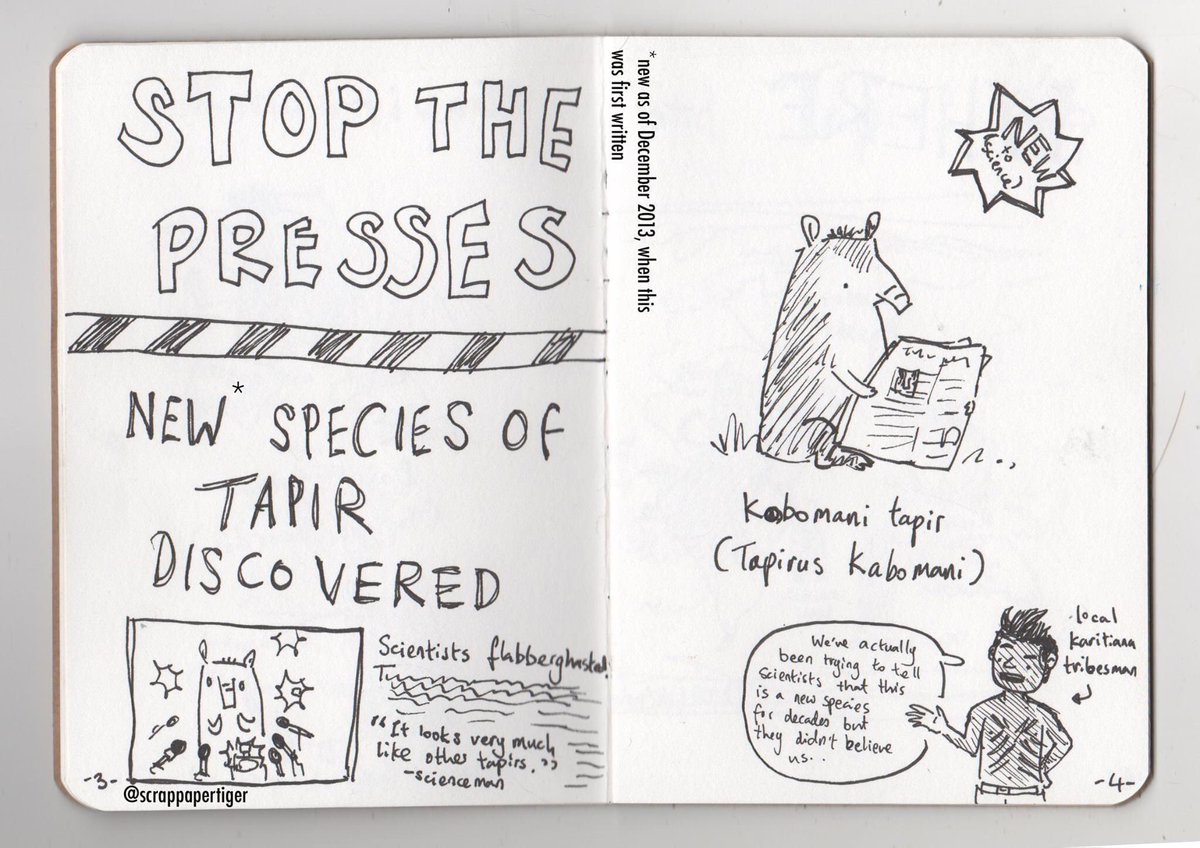 STOP THE
PRESSES
NEW* SPECIES OF
TAPIR
DISCOVERED
Scientists flabberghasted!
"It looks very much
like other tapirs."
-scienceman
-3-
@scrappapertiger
*new as of December 2013, when this
was first written
NEW
to
science)
Kobomani tapir
(Tapirus Kabomani)
We've actually
been trying to tell
scientists that this
is a new species
for decades but
they didn't believe
us..
local
karitiana
tribesman
-4-